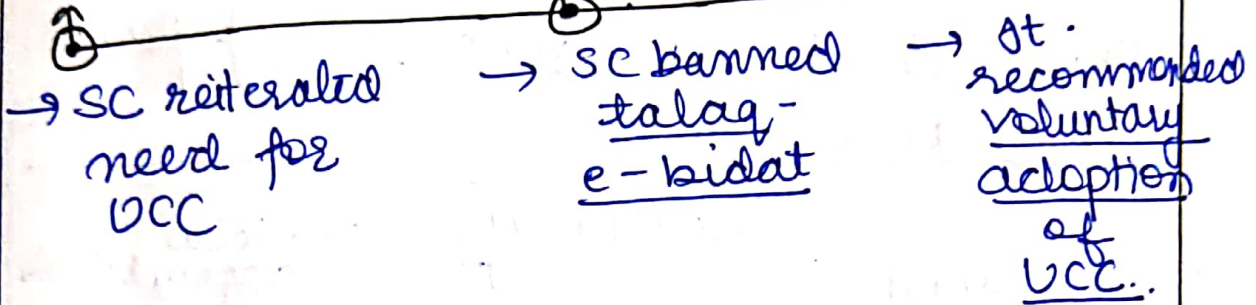 → SC reiterated
need for
UCC
→ SC banned
talaq-
e-bidat
→ It.
recommended
voluntary
adoption
of
UCC..